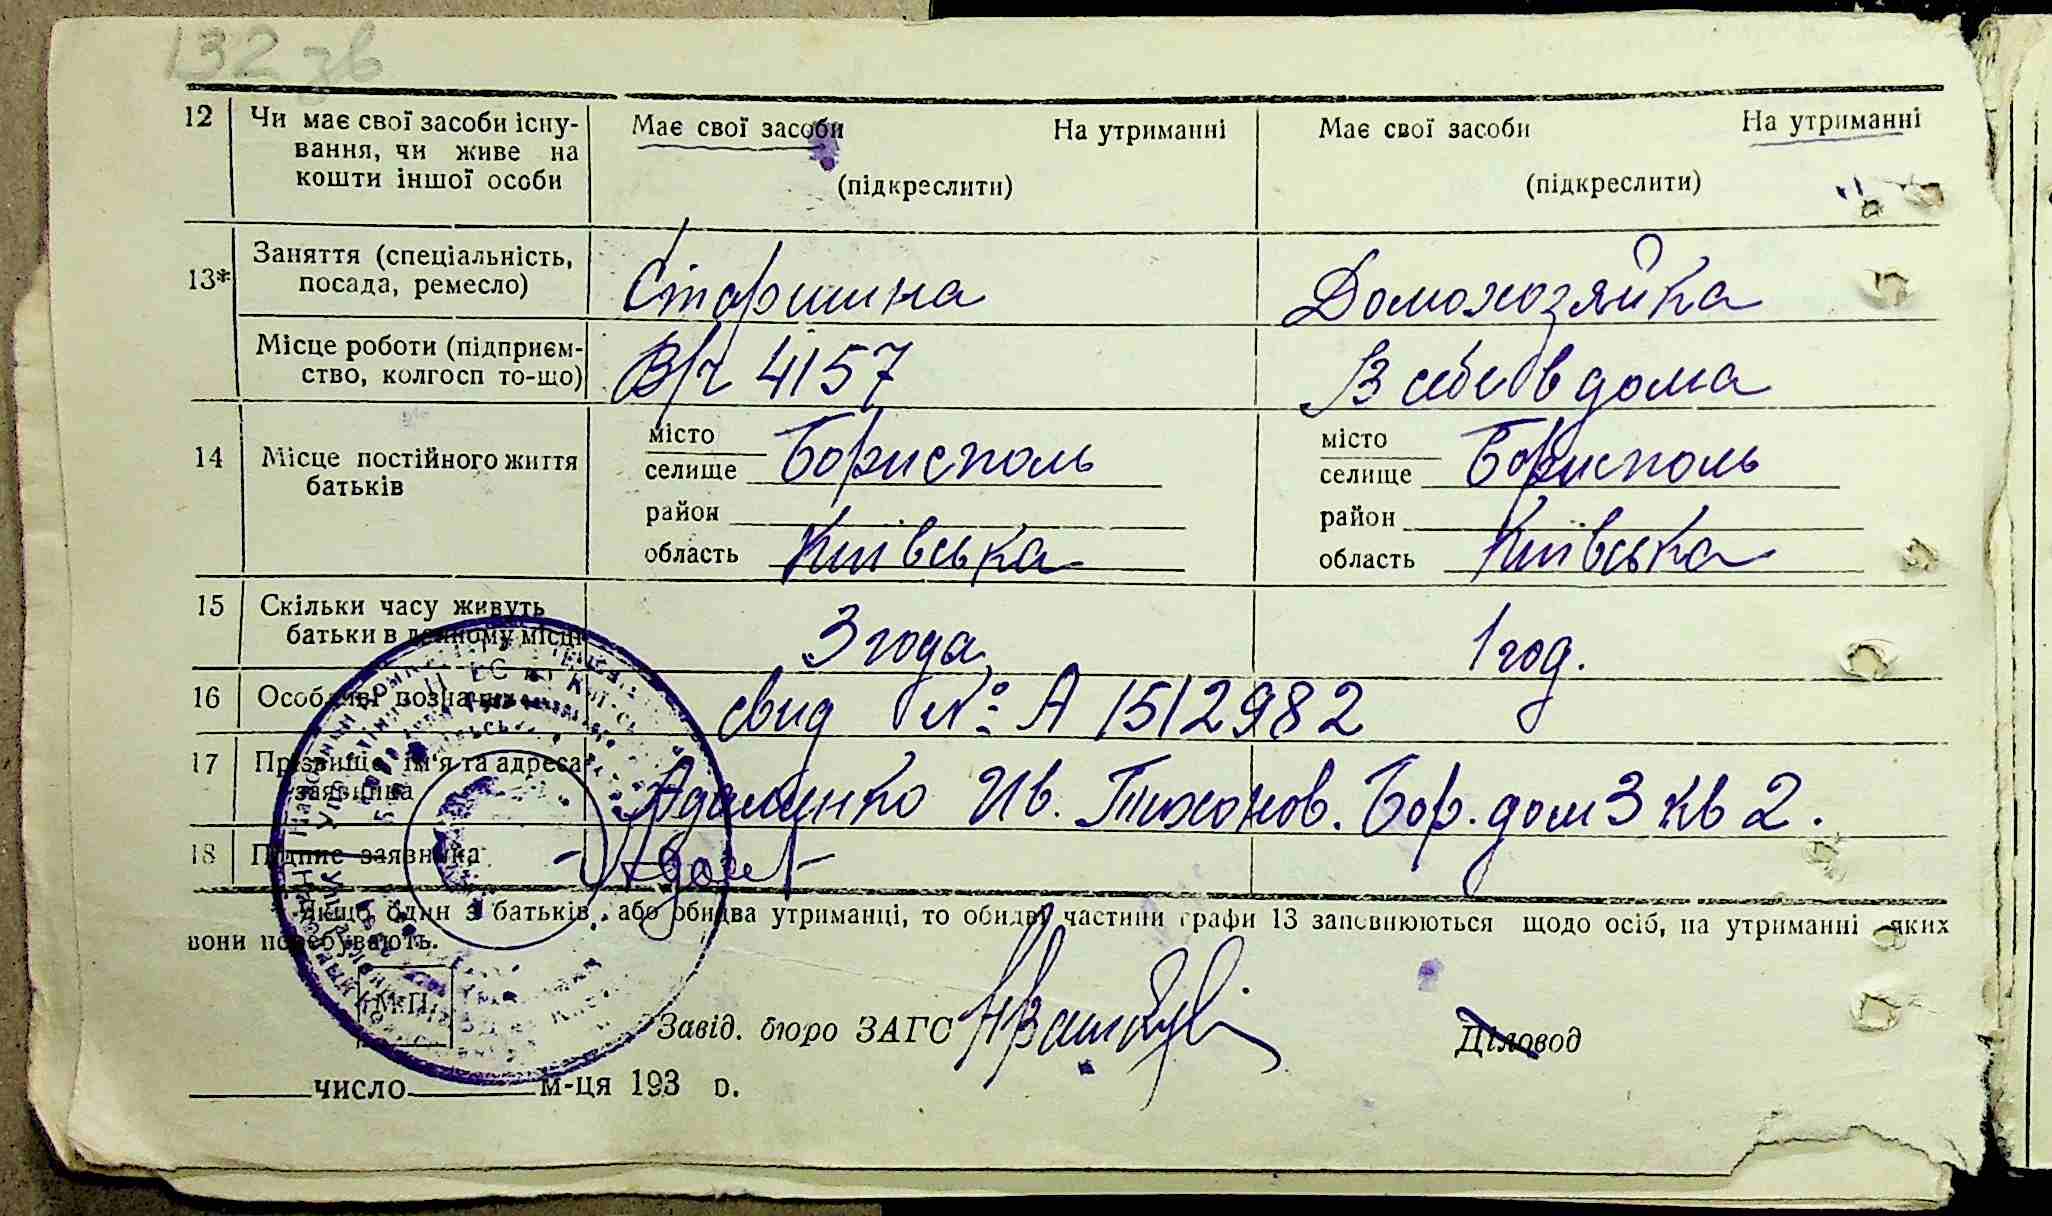 132 зв
12 Чи має свої засоби існу- Має свої засоби На утриманні Має свої засоби На утриманні
вання, чи живе на
кошти іншої особи (підкреслити) (підкреслити)
13* Заняття (спеціальність, Старшина Домохозяйка
посада, ремесло)
Місце роботи (підприєм- В/ч 4157 В себе в дома
ство, колгосп то-що)
14 Місце постійного життя місто Борисполь місто Борисполь
батьків селище селище
район район
область Київська область Київська
15 Скільки часу живуть 3 года 1 год.
батьки в даному місці
16 Особливі позначки свид № А 1512982
17 Прізвище, ім'я та адреса Адаменко Ив. Тихонов. Бор. дом 3 кв 2.
заявника
18 Підпис заявника Адам
Якщо один з батьків, або обидва утриманці, то обидві частини графи 13 заповнюються щодо осіб, на утриманні яких
вони перебувають.
М.П.
Завід. бюро ЗАГС Діловод
число м-ця 193 р.